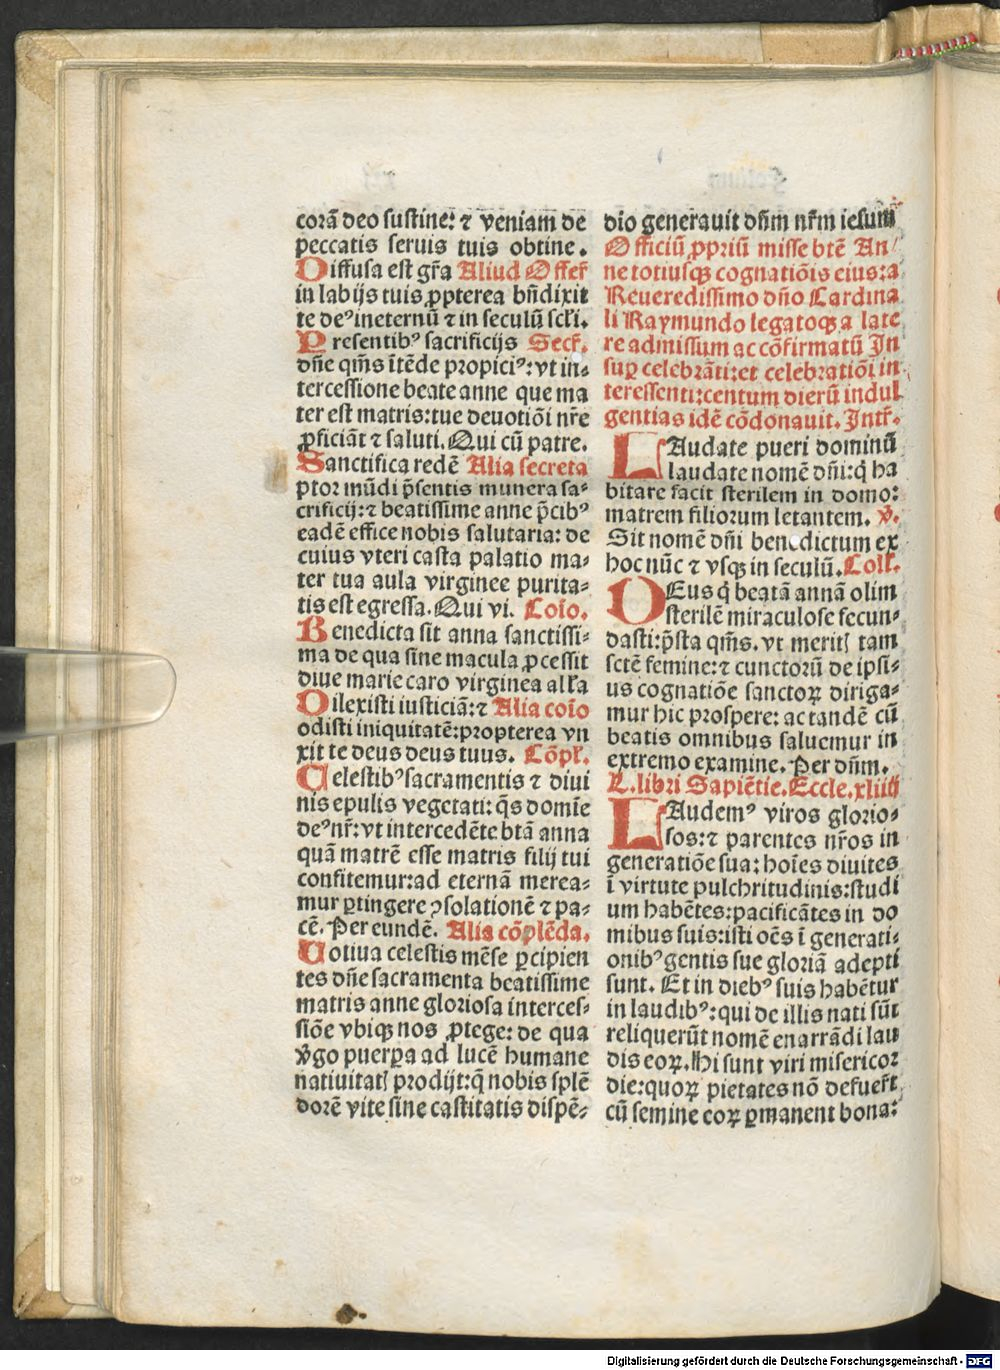 corā deo sustine: ⁊ veniam de
peccatis seruis tuis obtine.
Diffusa est gr̄a Aliud Offer̄
in labijs tuis ꝓpterea bn̄dixit
te deꝰ ineternū ⁊ in seculū scl̄i.
Presentibꝰ sacrificijs Secr̄.
dn̄e qm̄s ītēde propiciꝰ: vt in⸗
tercessione beate anne que ma
ter est matris: tue deuotiōi nr̄e
ꝓficiāt ⁊ saluti. Qui cū patre.
Sanctifica redē Alia secreta
ptor mūdi p̄sentis munera sa⸗
crificij: ⁊ beatissime anne p̄cibꝰ
eadē effice nobis salutaria: de
cuius vteri casta palatio ma⸗
ter tua aula virginee purita⸗
tis est egressa. Qui vi. Coīo.
Benedicta sit anna sanctissi⸗
ma de qua sine macula ꝓcessit
diue marie caro virginea all̄a
Dilexisti iusticiā: ⁊ Alia coīo
odisti iniquitatē: propterea vn
xit te deus deus tuus. Cōpl̄.
Celestibꝰ sacramentis ⁊ diui
nis epulis vegetati: q̄s domīe
deꝰ nr̄: vt intercedēte btā anna
quā matrē esse matris filij tui
confitemur: ad eternā merea⸗
mur ꝑtingere ꝯsolationē ⁊ pa⸗
cē. Per eundē. Alia cōplēda.
Votiua celestis mēse ꝑcipien
tes dn̄e sacramenta beatissime
matris anne gloriosa interces⸗
siōe vbiqꝫ nos ꝓtege: de qua
v̄go puerꝑa ad lucē humane
natiuitatꝭ prodijt: q̄ nobis splē
dorē vite sine castitatis dispē⸗
dio generauit dn̄m nr̄m iesum
Officiū ꝓpriū misse btē An⸗
ne totiusqꝫ cognatiōis eius: a
Reueredissimo dn̄o Cardina
li Raymundo legatoqꝫ a late
re admissum ac cōfirmatū In
suꝑ celebrāti: et celebratiōi in
teressenti: centum dierū indul
gentias idē cōdonauit. Intr̄.
LAudate pueri dominū
laudate nomē dn̄i: q̇ ha
bitare facit sterilem in domo:
matrem filiorum letantem. v̄.
Sit nomē dn̄i benedictum ex
hoc nūc ⁊ vsqꝫ in seculū. Coll̄.
DEus q̇ beatā annā olim
sterilē miraculose fecun⸗
dasti: p̄sta qm̄s. vt meritꝭ tam
sctē femine: ⁊ cunctorū de ipsi⸗
us cognatiōe sanctoꝝ diriga⸗
mur hic prospere: ac tandē cū
beatis omnibus saluemur in
extremo examine. Per dn̄m.
L. libri Sapiētie. Eccle. xliiij
LAudemꝰ viros glorio⸗
sos: ⁊ parentes nr̄os in
generatiōe sua: hoīes diuites
ī virtute pulchritudinis: studi
um habētes: pacificātes in do
mibus suis: isti oēs ī generati⸗
onibꝰ gentis sue gloriā adepti
sunt. Et in diebꝰ suis habētur
in laudibꝰ: qui de illis nati sūt
reliquerūt nomē enarrādi lau
dis eoꝝ. Hi sunt viri misericor
die: quoꝝ pietates nō defuer̄t
cū semine eoꝝ ꝑmanent bona:
Digitalisierung gefördert durch die Deutsche Forschungsgemeinschaft - DFG